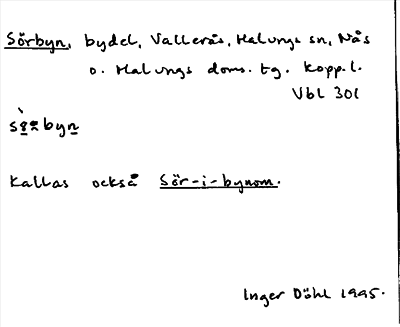 Sörbyn, bydel, Vallerås, Malungs sn, Nås
o. Malungs doms. tg. Kopp. l.
Vbl 301
Kallas också Sör-i-bynom.
Inger Döhl 1995.